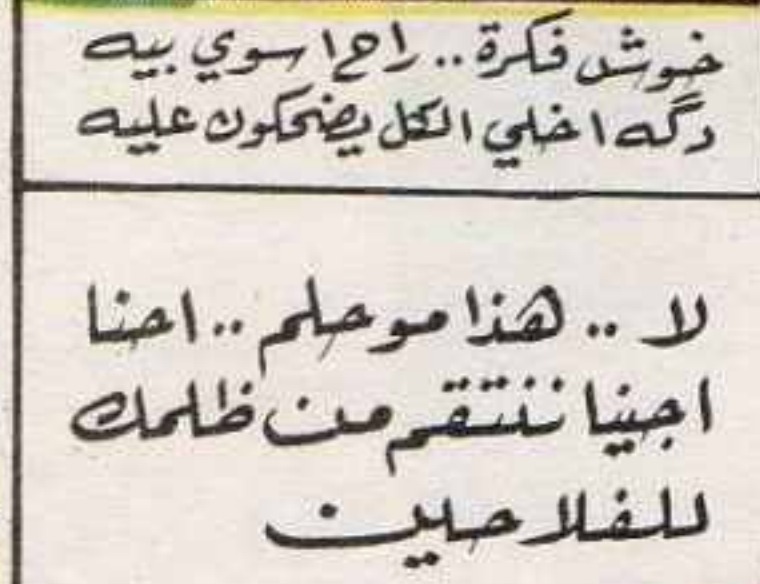 خوش فكرة .. راح اسوي بيه
دگه اخلي الكل يضحكون عليه
لا .. هذا مو حلم .. احنا
اجينا ننتقم من ظلمك
للفلاحين